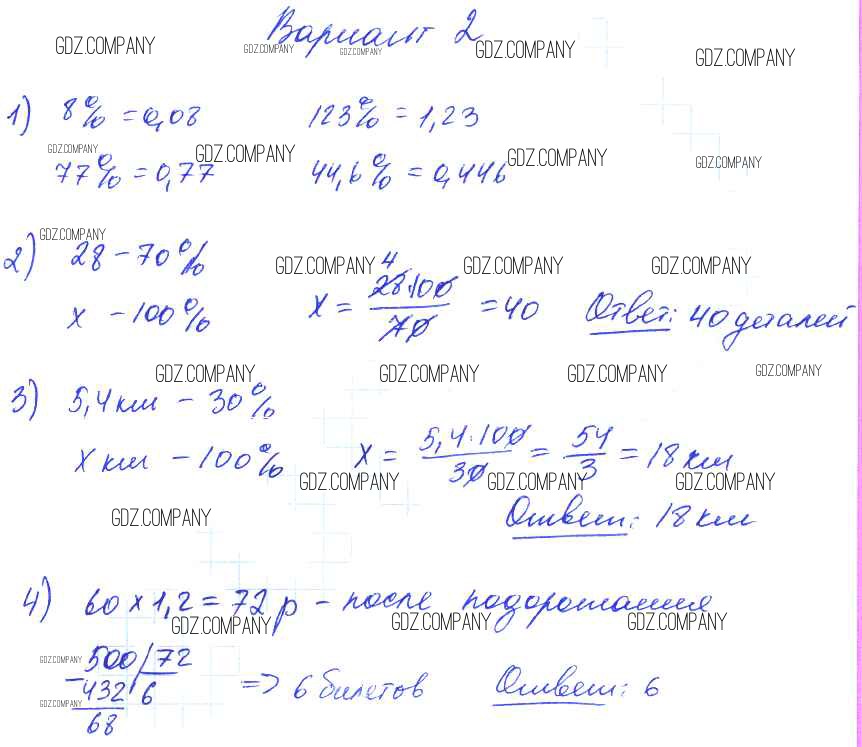 GDZ.COMPANY GDZ.COMPANY Вариант 2 GDZ.COMPANY GDZ.COMPANY GDZ.COMPANY
1) 8% = 0,08 123% = 1,23
GDZ.COMPANY GDZ.COMPANY GDZ.COMPANY GDZ.COMPANY
77% = 0,77 44,6% = 0,446
GDZ.COMPANY
2) 28 - 70%
GDZ.COMPANY GDZ.COMPANY GDZ.COMPANY
x - 100% x = 28·100/70 4 = 40 Ответ: 40 деталей
GDZ.COMPANY GDZ.COMPANY GDZ.COMPANY GDZ.COMPANY
3) 5,4 км - 30%
x км - 100% x = 5,4·100/30 = 54/3 = 18 км
GDZ.COMPANY GDZ.COMPANY GDZ.COMPANY
GDZ.COMPANY Ответ: 18 км
4) 60 x 1,2 = 72 р - после подорожания
GDZ.COMPANY GDZ.COMPANY GDZ.COMPANY
GDZ.COMPANY 500 72
- 432 6 => 6 билетов Ответ: 6
GDZ.COMPANY
68